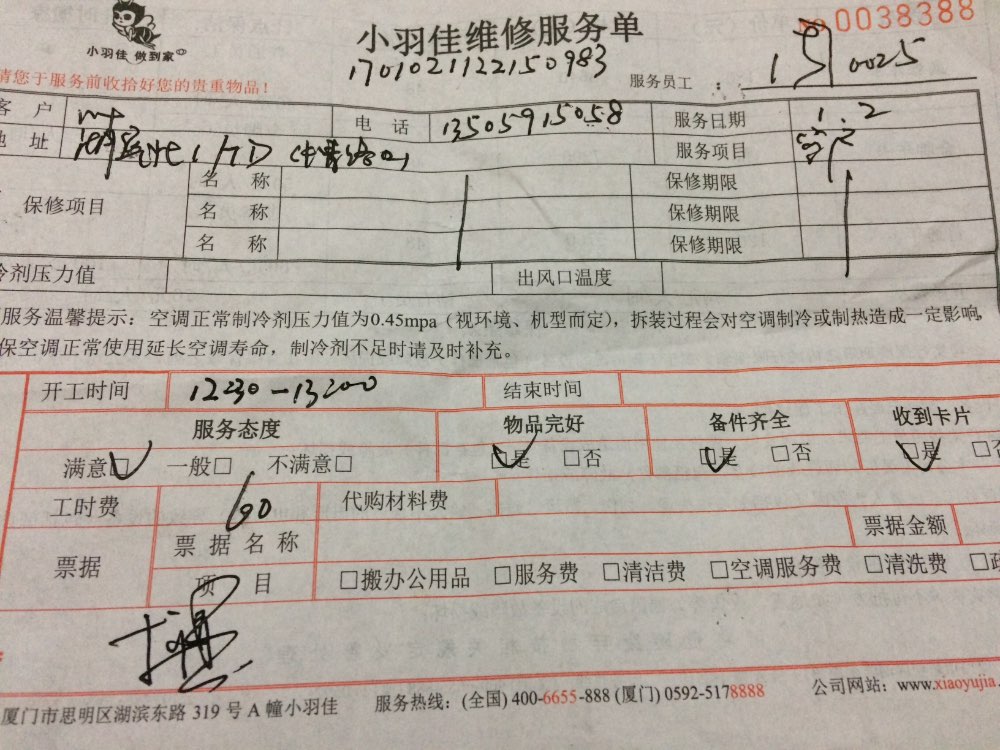 小羽佳 做到家
小羽佳维修服务单
0038388
1701021122150983
请您于服务前收拾好您的贵重物品！
服务员工： 0025
客 户 电 话 13505915058 服务日期 1.2
地 址 服务项目
保修项目 名 称 保修期限
名 称 保修期限
名 称 保修期限
冷剂压力值 出风口温度
服务温馨提示：空调正常制冷剂压力值为0.45mpa（视环境、机型而定），拆装过程会对空调制冷或制热造成一定影响，
保空调正常使用延长空调寿命，制冷剂不足时请及时补充。
开工时间 12:30-13:00 结束时间
服务态度 物品完好 备件齐全 收到卡片
满意□ 一般□ 不满意□ □是 □否 □是 □否 □是 □否
工时费 60 代购材料费
票据 票据名称 票据金额
项 目 □搬办公用品 □服务费 □清洁费 □空调服务费 □清洗费
厦门市思明区湖滨东路 319 号 A 幢小羽佳 服务热线：(全国) 400-6655-888 (厦门) 0592-5178888 公司网站：www.xiaoyujia.